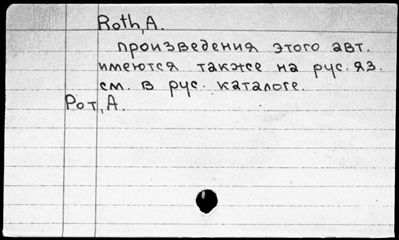 Roth, A.
произведения этого авт.
имеются также на рус. яз.
см. в рус. каталоге.
Рот, А.